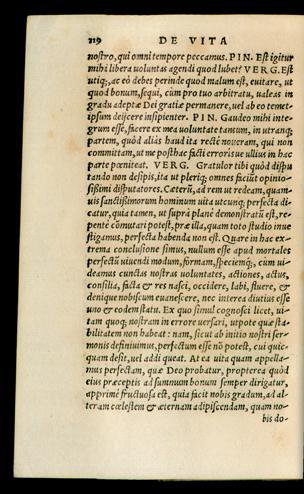 219 DE VITA
nostro, qui omni tempore peccamus. PIN. Est igitur
mihi libera voluntas agendi quod lubet? VERG. Est
utiq;, ac eò debes perinde quod malum est, euitare, ut
quod bonum, sequi, cum pro tuo arbitratu, ualeas in
gradu adeptæ Dei gratiæ permanere, uel ab eo temet-
ipsum deijcere insipienter. PIN. Gaudeo mihi inte-
grum esse, facere ex mea uoluntate tantum, in utranq;
partem, quòd aliàs haud ita rectè noueram, qui non
committam, ut me posthac facti erroris ue ullius in hac
parte pœniteat. VERG. Gratulor tibi quòd dispu
tando non desipis, ita ut pleriq; omnes faciũt opinio-
sißimi disputatores. Cæterũ, ad rem ut redeam, quam-
uis sanctißimorum hominum uita utcunq; perfecta di-
catur, quia tamen, ut suprà planè demonstratũ est, re-
pentè cõmutari potest, præ illa, quam toto studio inue
stigamus, perfecta habenda non est. Quare in hac ex-
trema conclusione simus, nullum esse apud mortales
perfectũ uiuendi modum, formam, speciemq;, cum ui-
deamus cunctas nostras uoluntates, actiones, actus,
consilia, facta & res nasci, occidere, labi, fluere, &
denique nobiscum euanescere, nec interea diutius esse
uno & eodem statu. Ex quo simul cognosci licet, ui-
tam quoq; nostram in errore uersari, utpote quæ sta-
bilitatem non habeat: nam, sicut ab initio nostri ser-
monis definiuimus, perfectum esse nõ potest, cui quic-
quam desit, uel addi queat. At ea uita quam appella-
mus perfectam, quæ Deo probatur, propterea quòd
eius præceptis ad summum bonum semper dirigatur,
apprimè fructuosa est, quia facit nobis gradum, ad al-
teram cœlestem & æternam adipiscendam, quam no-
bis do-